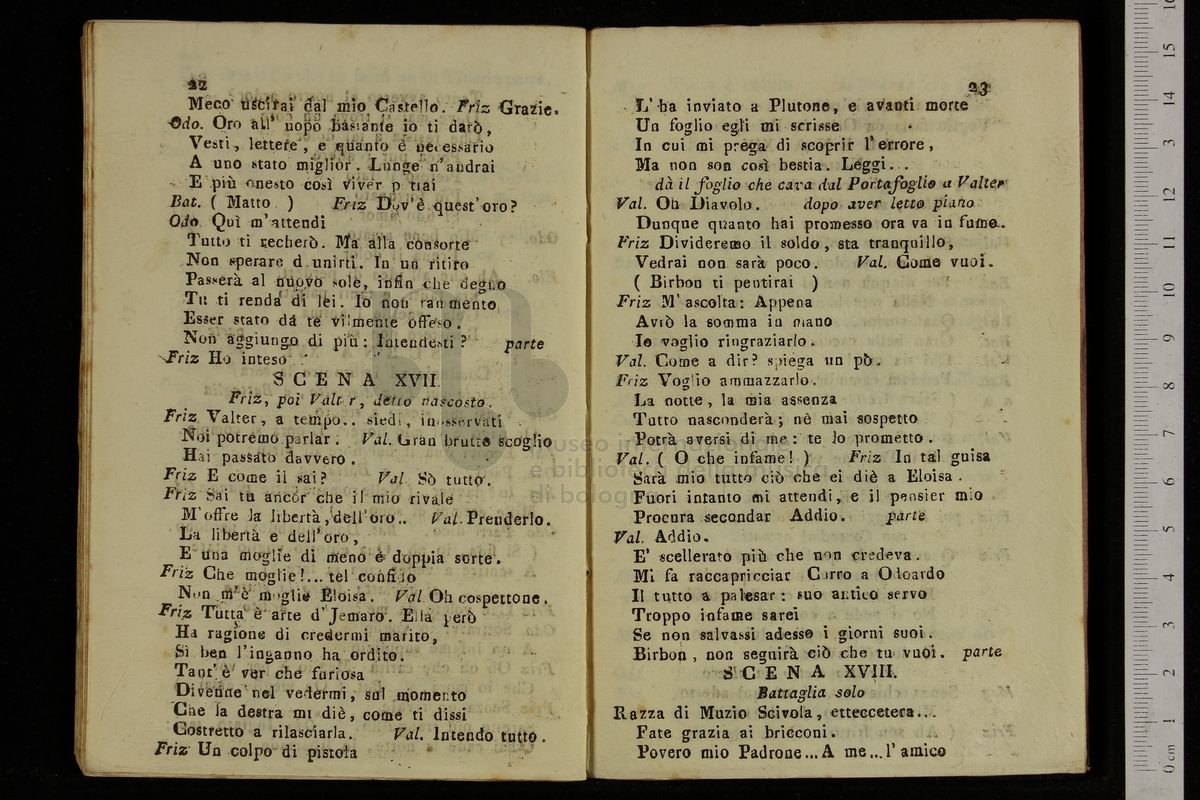 22
Meco uscirai dal mio Castello. Friz Grazie.
Odo. Oro all' uopo bastante io ti darò,
Vesti, lettere, e quanto è necessario
A uno stato miglior. Lunge n'andrai
E più onesto così viver p trai
Bat. ( Matto ) Friz Dov'è quest'oro?
Odo. Quì m'attendi
Tutto ti recherò. Ma alla consorte
Non sperare d unirti. In un ritiro
Passerà al nuovo sole, infin che degno
Tu ti renda di lei. Io non rammento
Esser stato da te vilmente offeso.
Non aggiungo di più: Intendesti? parte
Friz Ho inteso.
SCENA XVII.
Friz, poi Valt r, detto nascosto.
Friz Valter, a tempo.. siedi, inosservati
Noi potremo parlar. Val. Gran brutto scoglio
Hai passato davvero.
Friz E come il sai? Val. Sò tutto.
Friz Sai tu ancor che il mio rivale
M'offre la libertà, dell'oro.. Val. Prenderlo.
La libertà e dell'oro,
E una moglie di meno è doppia sorte.
Friz Che moglie!... tel confido
Non m'è moglie Eloisa. Val Oh cospettone.
Friz Tutta è arte d'Jemaro. Ella però
Ha ragione di credermi marito,
Sì ben l'inganno ha ordito.
Tant'è ver che furiosa
Divenne nel vedermi, sul momento
Che la destra mi diè, come ti dissi
Costretto a rilasciarla. Val. Intendo tutto.
Friz Un colpo di pistola
23
L'ha inviato a Plutone, e avanti morte
Un foglio egli mi scrisse
In cui mi prega di scoprir l'errore,
Ma non son così bestia. Leggi...
dà il foglio che cava dal Portafoglio a Valter
Val. Oh Diavolo. dopo aver letto piano
Dunque quanto hai promesso ora va in fumo.
Friz Divideremo il soldo, sta tranquillo,
Vedrai non sarà poco. Val. Come vuoi.
( Birbon ti pentirai )
Friz M'ascolta: Appena
Avrò la somma in mano
Io voglio ringraziarlo.
Val. Come a dir? spiega un pò.
Friz Voglio ammazzarlo.
La notte, la mia assenza
Tutto nasconderà; nè mai sospetto
Potrà aversi di me: te lo prometto.
Val. ( O che infame! ) Friz In tal guisa
Sarà mio tutto ciò che ei diè a Eloisa.
Fuori intanto mi attendi, e il pensier mio
Procura secondar Addio. parte
Val. Addio.
E' scellerato più che non credeva.
Mi fa raccapricciar Corro a Odoardo
Il tutto a palesar: suo antico servo
Troppo infame sarei
Se non salvassi adesso i giorni suoi.
Birbon, non seguirà ciò che tu vuoi. parte
SCENA XVIII.
Battaglia solo
Razza di Muzio Scivola, ettecetera...
Fate grazia ai bricconi.
Povero mio Padrone... A me... l'amico